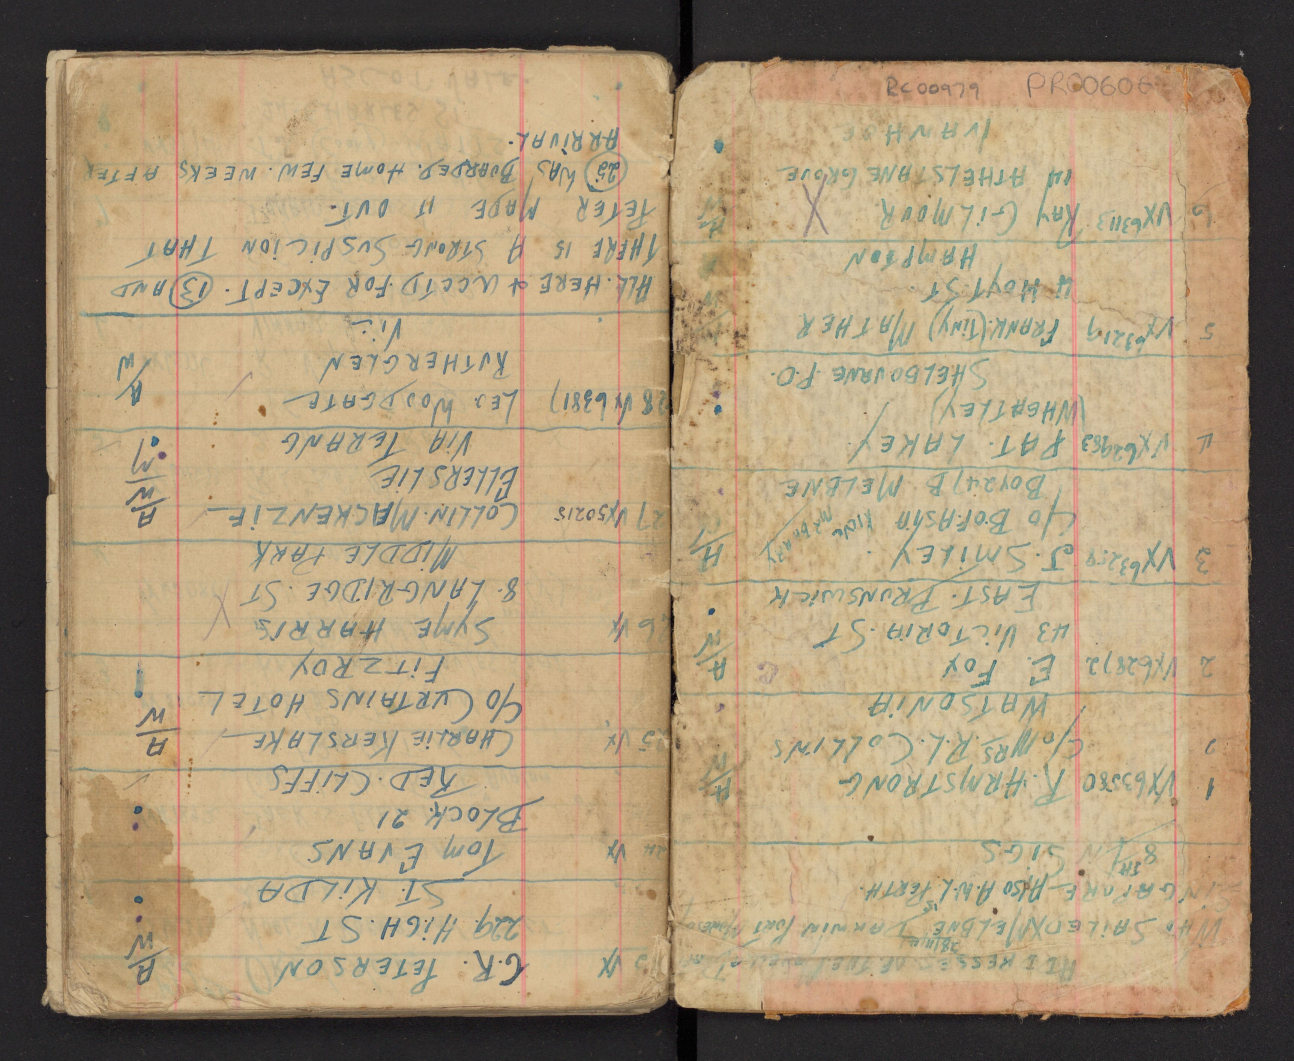 ADDRESSES OF THE
WHO SAILED EX MELBNE DARWIN PORT MORESBY
SINGAPORE ALSO A.W.L. PERTH.
8TH DIV SIGS
1 VX63580 R. ARMSTRONG A/W
C/O MRS. R. L. COLLINS
WATSONIA
2 VX62872 E. FOX A/W
43 VICTORIA. ST
EAST. BRUNSWICK
3 VX63259 J. SMILEY.
C/O BOFASIA
BOX247B MELBNE
4 VX62983 PAT. LAKEY
(WHEATLEY)
SHELBOURNE P.O.
5 VX63219 FRANK.(TINY) MATHER
4 HOYT. ST
HAMPTON
6 VX63113 RAY GILMOUR X
14 ATHELSTANE GROVE
IVANHOE
VX G.R. PETERSON A/W
229 HIGH. ST
ST. KILDA
24 VX TOM EVANS
BLOCK. 21
RED. CLIFFS
25 VX CHARLIE KERSLAKE A/W
C/O CURTAINS HOTEL
FITZROY
26 VX SYME HARRIS X
8. LANGRIDGE. ST
MIDDLE PARK
27 VX50215 COLLIN. MACKENZIE A/W/M
ELLERSLIE
VIA TERANG
28 VX63817 LES WOODGATE A/W
RUTHERGLEN
VIC
ALL. HERE & ACCTD. FOR EXCEPT. 13 AND
THERE IS A STRONG SUSPICION THAT
PETER MADE IT OUT.
25 WAS BOARDED. HOME FEW. WEEKS AFTER
ARRIVAL.
RC00979
PR00606